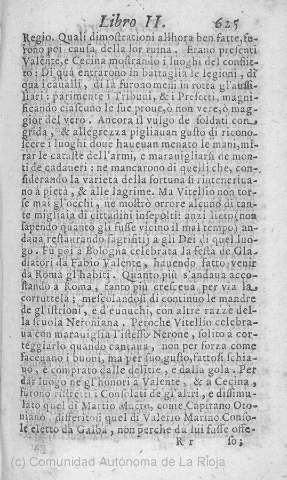 Libro II. 625
Regio. Quali dimostrationi all'hora ben fatte, fu-
rono poi causa della lor ruina. Erano presenti
Valente, e Cecina mostrando i luoghi del conflit-
to: Di quà entrarono in battaglia le legioni, di
quà i caualli, di là furono messi in rotta gl'aussi-
liari: parimente i Tribuni, & i Prefetti, magni-
ficando ciascuno le sue proue, ò non vere, ò mag-
gior del vero. Ancora il vulgo de soldati con
grida, & allegrezza pigliauan gusto di ricono-
scere i luoghi doue haueuan menato le mani, mi-
rar le cataste dell'armi, e marauigliarsi de mon-
ti de cadaueri: ne mancarono di quelli che, con-
siderando la varietà della fortuna si inteneriua-
no à pietà, & alle lagrime. Ma Vitellio non tor-
se mai gl'occhi, ne mostrò orrore alcuno di tan-
te migliaia di cittadini insepolti: anzi lieto (non
sapendo quanto gli fusse vicino il mal tempo) an-
daua restaurando sagrifitij a gli Dei di quel luo-
go. Fu poi a Bologna celebrata la festa de Gla-
diatori da Fabio Valente, hauendo fatto venir
da Roma gl'habiti. Quanto più s'andaua acco-
stando a Roma, tanto più cresceua per via la
corruttela; mescolandosi di continuo le mandre
de gl'istrioni, e d'eunuchi, con altre razze del-
la scuola Neroniana. Peroche Vitellio celebra-
ua con marauiglia l'istesso Nerone, solito a cor-
teggiarlo quando cantaua, non per forza come
faceuano i buoni, ma per suo gusto, fattosi schia-
uo, e comprato dalle delitie, e dalla gola. Per
dar luogo ne gl'honori a Valente, & a Cecina,
furono ristretti i Consolati de gl'altri, e dissimu-
lato quel di Martio Macro, come Capitano Oto-
niano, differitosi quel di Valerio Marino Conso-
le eletto da Galba, non perche da lui fusse offe-
R r so;
(c) Comunidad Autónoma de La Rioja